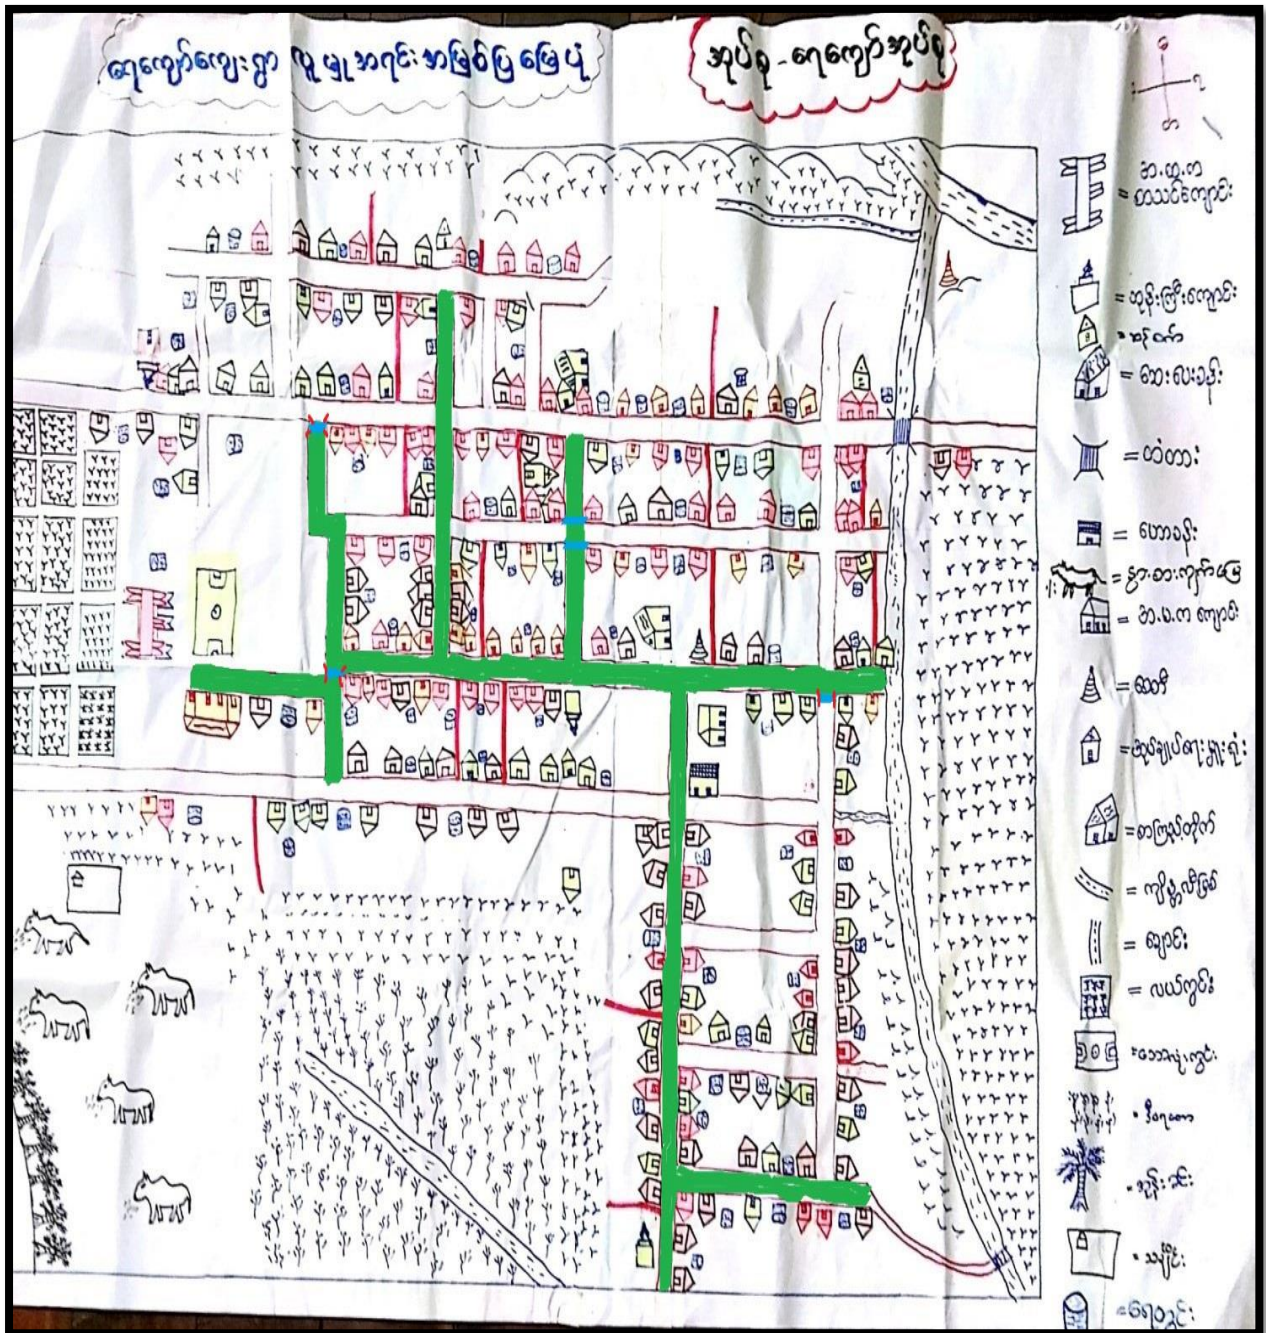 ရေကျော်ကျေးရွာ လူမှုအရင်းအမြစ်ပြမြေပုံ
အုပ်စု - ရေကျော်အုပ်စု
= အ.ထ.က
စာသင်ကျောင်း
= ဘုန်းကြီးကျောင်း
= ဆေးပေးခန်း
= တံတား
= ဟောခန်း
= နွားစားကျက်မြေ
= အ.မ.က ကျောင်း
= စေတီ
= အုပ်ချုပ်ရေးမှူးရုံး
= စာကြည့်တိုက်
= ချောင်း
= လယ်ကွင်း
= ဘောလုံးကွင်း
= ဒီရေတော
= အုန်းပင်
= သချိုင်း
= ရေတွင်း